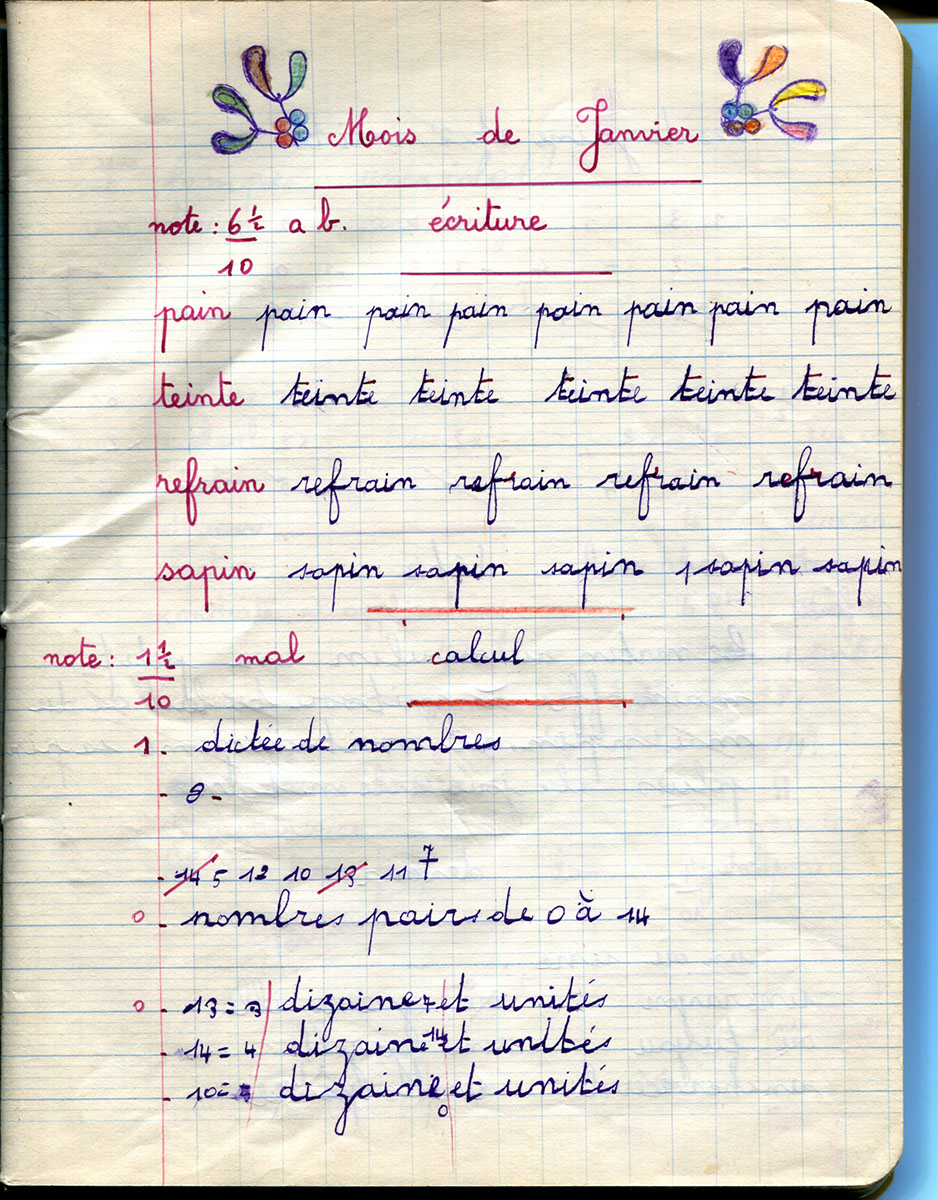 Mois de Janvier
note : 6 1/2 a b. écriture
10
pain pain pain pain pain pain pain pain
teinte teinte teinte teinte teinte teinte
refrain refrain refrain refrain refrain
sapin sapin sapin sapin sapin sapin
note : 1 1/2 mal calcul
10
1. dictée de nombres
- 8 -
- 14 5 12 10 13 11 7
0 - nombres pairs de 0 à 14
0 - 13 = 3 dizaine 7 et unités
- 14 = 4 dizaine 14 et unités
- 10 = dizaine 0 et unités